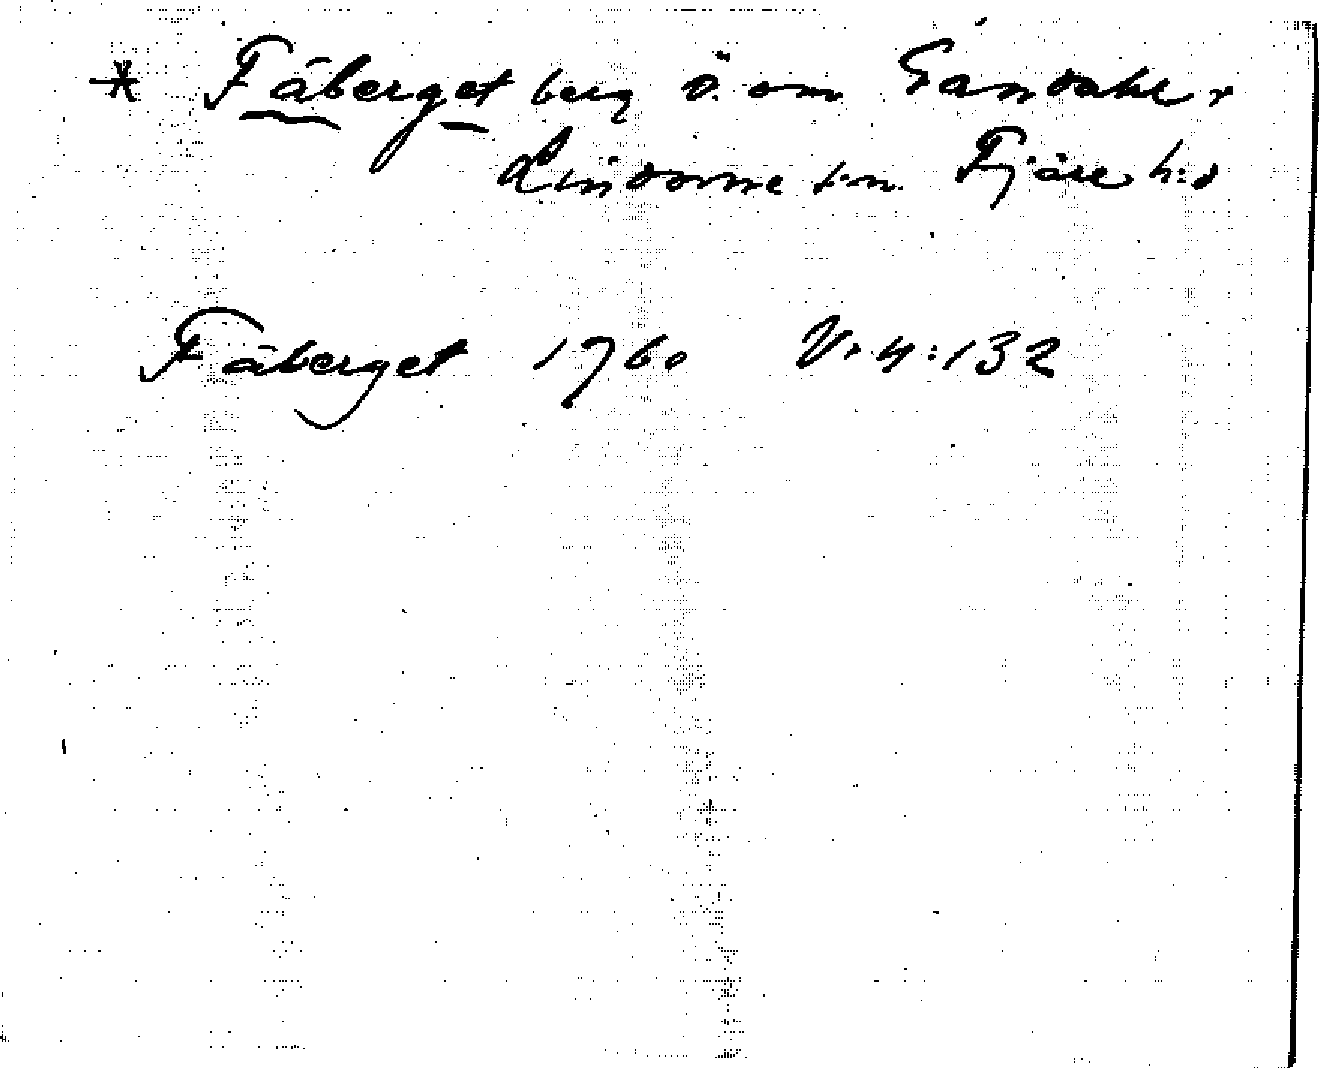 * Fäberget berg ö. om Gåndahl,
Lindome sn. Fjäre h:d
Fäberget 1760 V. 4:132